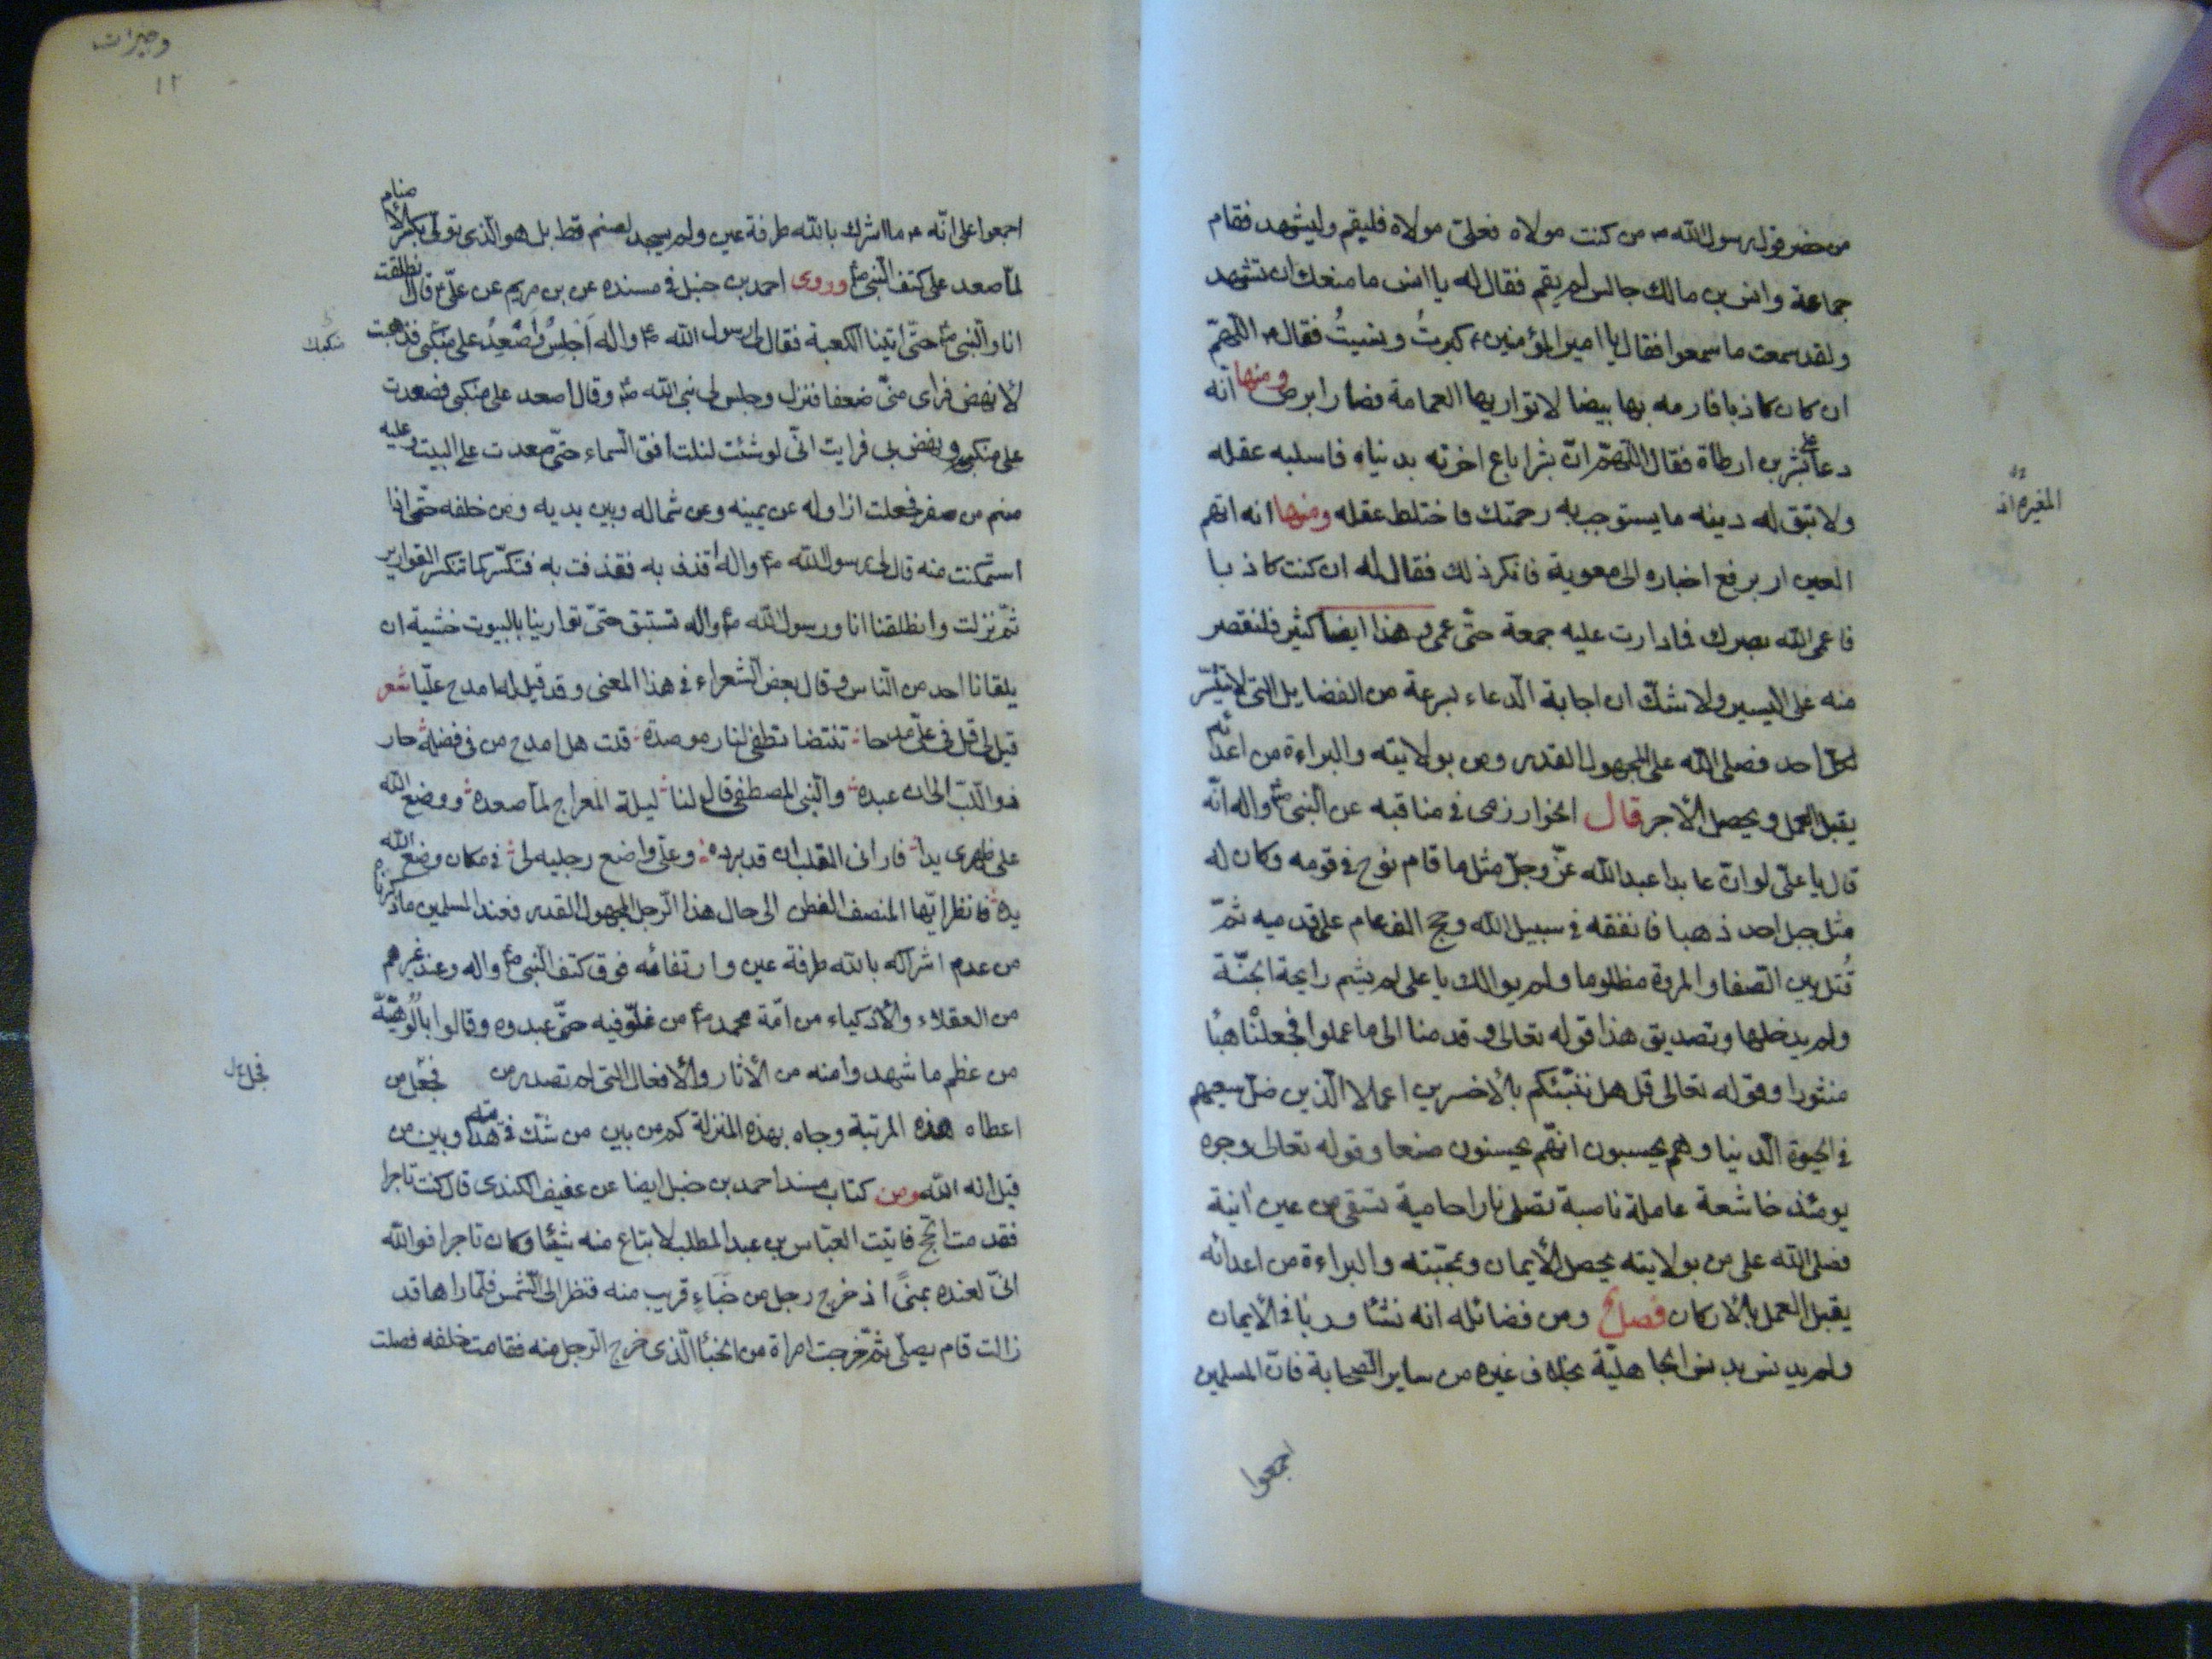 من حضر قول رسول الله ص من كنت مولاه فعلى مولاه فليقم وليشهد فقام
جماعة وانس بن مالك جالس لم يقم فقال له يا انس ما منعك ان تشهد
ولقد سمعت ما سمعوا فقال يا امير المؤمنين ع كبرتُ ونسيتُ فقال ع اللّهمّ
ان كان كاذبا فارمه بها بيضا لا تواريها العمامة فصار ابرص ومنها انّه
دعا على بشر بن ارطاة فقال اللّهمّ انّ بشرا باع اخرته بدنياه فاسلبه عقله
ولا تبق له دينه ما يستوجب به رحمتك فاختلط عقله ومنها انه اتهم
العيزار برفع اخباره الى معوية فانكر ذلك فقال له ان كنت كاذبا
فاعمى الله بصرك فما دارت عليه جمعة حتّى عمى وهذا ايضا كثير فلنقصر
منه على اليسير ولا شكّ ان اجابة الدّعاء بسرعة من الفضايل التى لا تتيسّر
لكل احد فصلى الله على المجهول القدر ومن بولايته والبراءة من اعدائه
يقبل العمل ويحصل الأجر قال الخوارزمى فى مناقبه عن النّبى ص واله انّه
قال يا علىّ لو انّ عابدا عبد الله عزّ وجلّ مثل ما قام نوح فى قومه وكان له
مثل جبل احد ذهبا فانفقه فى سبيل الله وحج الف عام على قدميه ثمّ
قُتل بين الصّفا والمروة مظلوما ولم يوالك يا على لم يشم رايحة الجنّة
ولم يدخلها وتصديق هذا قوله تعالى وقدمنا الى ما عملوا فجعلنا هباً
منثورا وقوله تعالى قل هل ننبّئكم بالأخسرين اعمالا الّذين ضلّ سعيهم
فى الحيوة الدّنيا وهم يحسبون انّهم يحسنون صنعا وقوله تعالى وجوه
يومئذ خاشعة عاملة ناصبة تصلى نارا حامية تسقى من عين آنية
فصلى الله على من بولايته يحصل الأيمان وبمحبّته والبراءة من اعدائه
يقبل العمل بالأركان فصل ومن فضائله انه نشأ وربا فى الأيمان
ولم يدنس بدنس الجاهليّة بخلاف غيره من ساير الصّحابة فانّ المسلمين
اجمعوا
المغيره انه
وجيزات
١٢
اجمعوا على انّه ع ما اشرك بالله طرفة عين ولم يسجد لصنم قط بل هو الّذى تولّى تكسر الأصنام
لمّا صعد على كتف النّبى ص وروى احمد بن حنبل فى مسنده عن بن مريم عن علىّ ع قال انطلقت
انا والنّبى ص حتّى اتينا الكعبة فقال لى رسول الله ص واله اجلسُ وَاصْعِدُ على منكبى فذهبت
منكبك
لأنهض فراى منّى ضعفا فنزل وجلس لى نبى الله ص وقال اصعد على منكبى فصعدت
على منكبى ونهض بى فرايت انّى لو شئت لنلت أفق السّماء حتّى صعدت على البيت وعليه
صنم من صفر فجعلت ازاوله عن يمينه وعن شماله وبين يديه ومن خلفه حتّى اذا
استمكنت منه قال لى رسول الله ص واله اقذف به فقذفت به فتكسّر كما تتكسر القوارير
ثمّ نزلت وانطلقنا انا ورسول الله ص واله نستبق حتّى توارينا بالبيوت خشية ان
يلقانا احد من النّاس وقال بعض الشّعراء فى هذا المعنى وقد قيل له امدح عليّا شعر
قيل لى قل فى علىّ مدحا تنتضا تطفى لنار موصدة قلت هل امدح من فى فضله حار
ذو اللّبّ الى ان عبده والنّبى المصطفى قال لنا ليلة المعراج لمّا صعده ووضع الله
على ظهرى يدا فارانى القلب ان قد برده وعلىّ واضع رجليه لى فى مكان وضع الله
يده فانظر ايّها المنصف الفطن الى حال هذا الرّجل المجهول القدر فعند المسلمين ما ذكرناه
من عدم اشراكه بالله طرفة عين وارتقائه فوق كتف النّبى ص واله وعند غيرهم
من العقلاء والأذكياء من امّة محمد ص من غلوّ فيه حتّى عبدوه وقالوا بالُوهيّته
من عظم ما شهدوا منه من الأثار والأفعال التى لم تصدر من فجعل من
فجل
اعطاه هذه المرتبة وجاه بهذه المنزلة كم من بين من شك فى هذا وبين من
قيل انه الله ومن كتاب مسند احمد بن حنبل ايضا عن عفيف الكندى قال كنت تاجرا
فقدمت الحجّ فاتيت العبّاس بن عبد المطلب لابتاع منه شيئا وكان تاجرا فوالله
انّى لعنده بمنىً اذ خرج رجل من خباءٍ قريب منه فنظر الى الشّمس فلمّا راها قد
زالت قام يصلّى ثمّ خرجت امراة من الخبأ الّذى خرج الرّجل منه فقامت خلفه فصلت